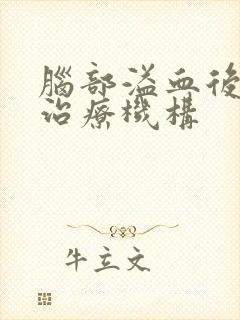 腦部溢血後
治療機構
牛立文